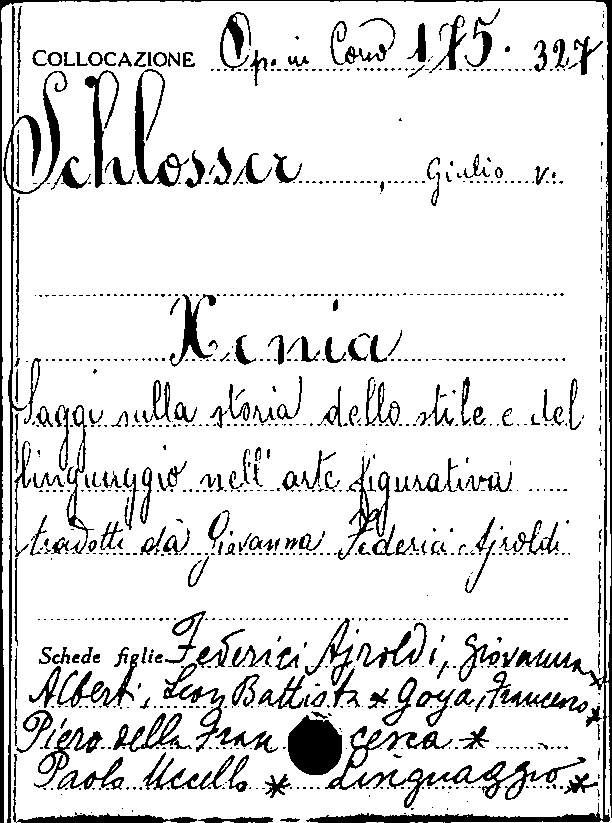 COLLOCAZIONE Op. in Cons 175. 327
Schlosser, Giulio v.
Xenia
Saggi sulla storia dello stile e del
linguaggio nell'arte figurativa
tradotti da Giovanna Federici Ajroldi
Schede figlie Federici Ajroldi, Giovanna *
Alberti, Leon Battista * Goya, Francesco *
Piero della Francesca *
Paolo Uccello * Linguaggio *